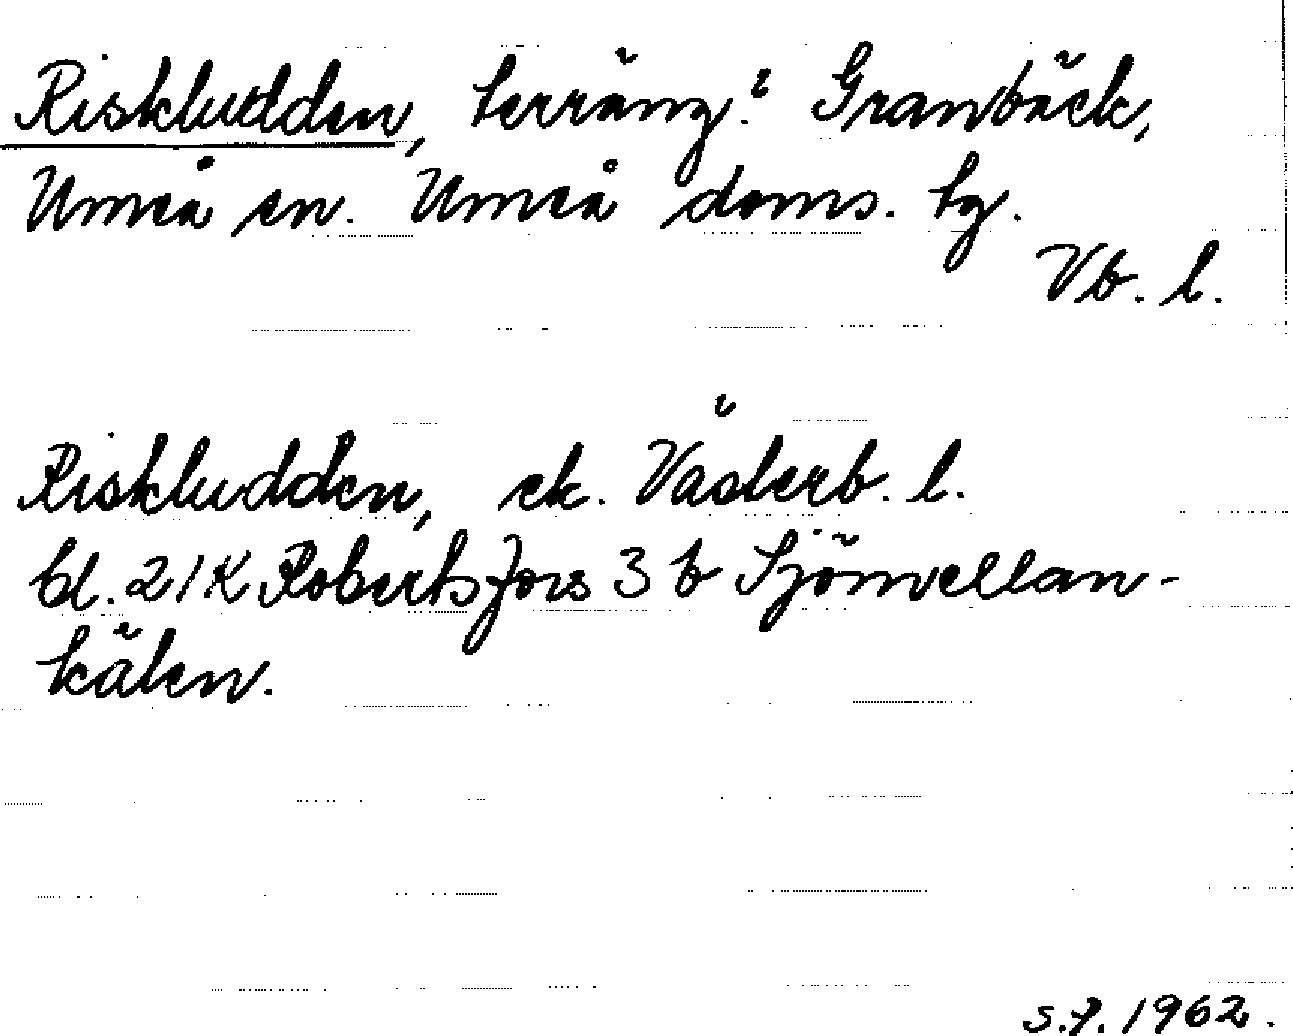 Riskludden, terräng i Granbäck,
Umeå sn. Umeå doms. tg.
Vb. l.
Riskludden, ek. Västerb. l.
bl. 21K Robertsfors 3 b Sjömellan-
kälen.
S.F. 1962.